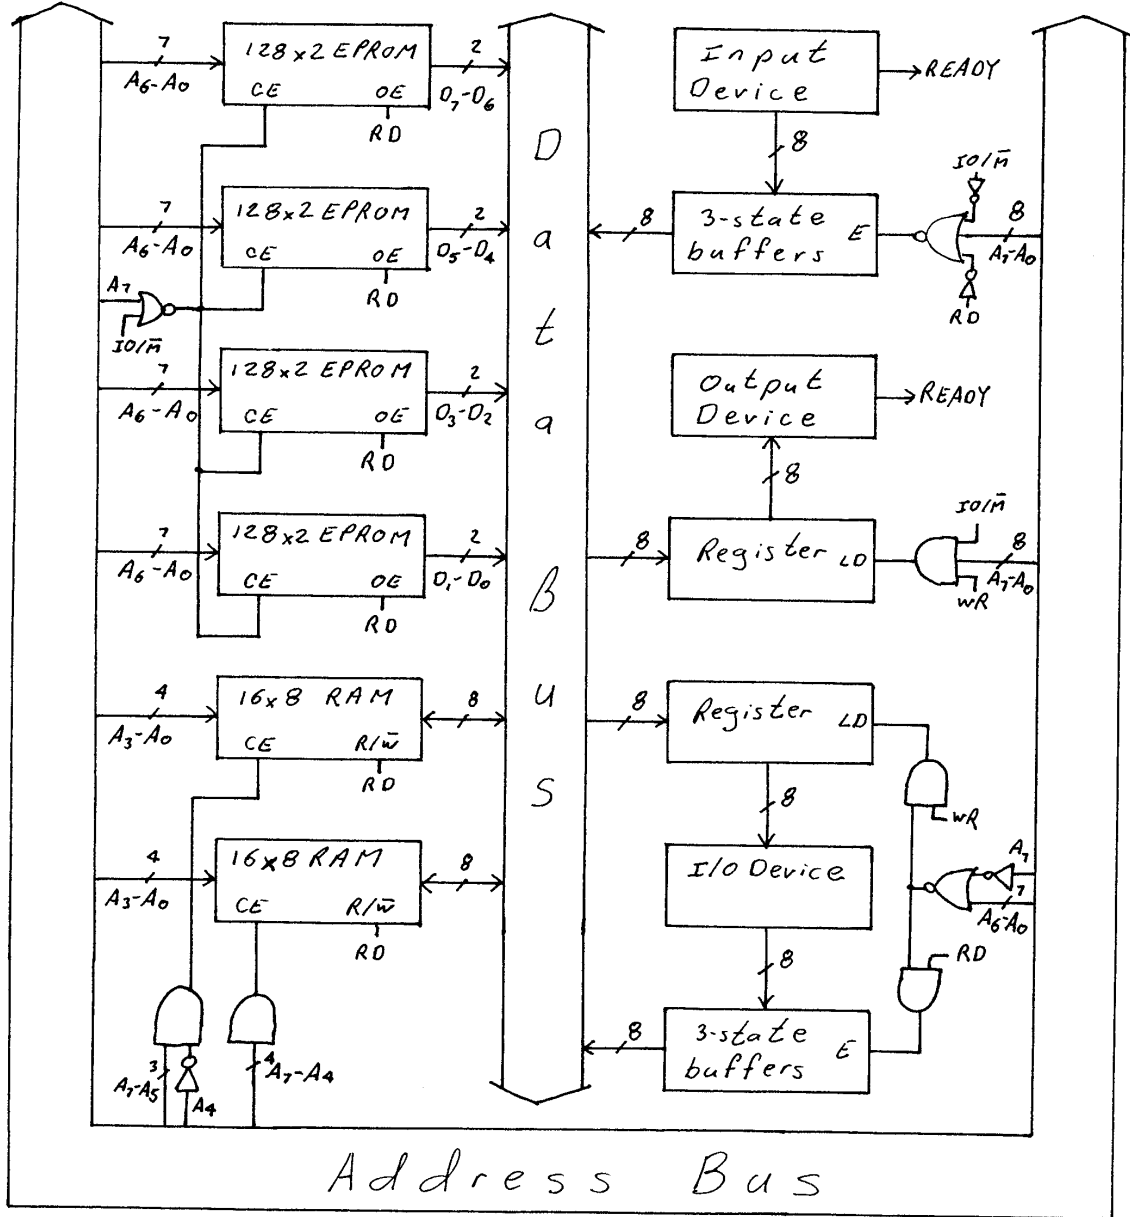 7
A6-A0
128x2 EPROM
CE OE
RD
2
D7-D6
7
A6-A0
128x2 EPROM
CE OE
RD
2
D5-D4
A7
IO/M̄
7
A6-A0
128x2 EPROM
CE OE
RD
2
D3-D2
7
A6-A0
128x2 EPROM
CE OE
RD
2
D1-D0
4
A3-A0
16x8 RAM
CE R/W̄
RD
8
4
A3-A0
16x8 RAM
CE R/W̄
RD
8
3
A7-A5
A4
4
A7-A4
Data Bus
Input
Device
READY
8
8
3-state
buffers
E
IO/M̄
8
A7-A0
RD
Output
Device
READY
8
8
Register LD
IO/M̄
8
A7-A0
WR
8
Register LD
8
WR
I/O Device
A7
7
A6-A0
8
RD
8
3-state
buffers
E
Address Bus